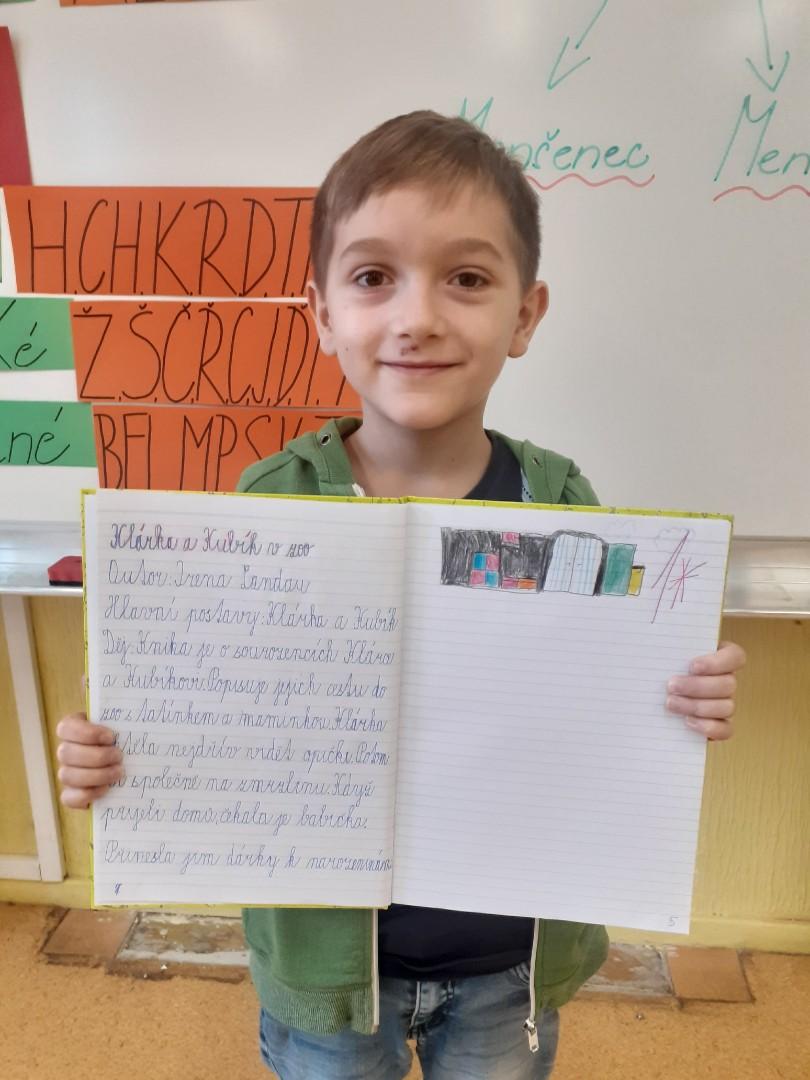 Menšenec
Men
H.CH.K.R.D.T.
ké
Ž.Š.Č.Ř.C.J.Ď.Ť.
né
BFLMPS
Klárka a Kubík v zoo
Autor: Irena Landau
Hlavní postavy: Klárka a Kubík
Děj: Kniha je o sourozencích Klárce
a Kubíkovi. Popisuje jejich cestu do
zoo s tatínkem a maminkou. Klárka
chtěla nejdřív vidět opičky. Potom
společně na zmrzlinu. Když
přijeli domů, čekala je babička.
Přinesla jim dárky k narozeninám
5